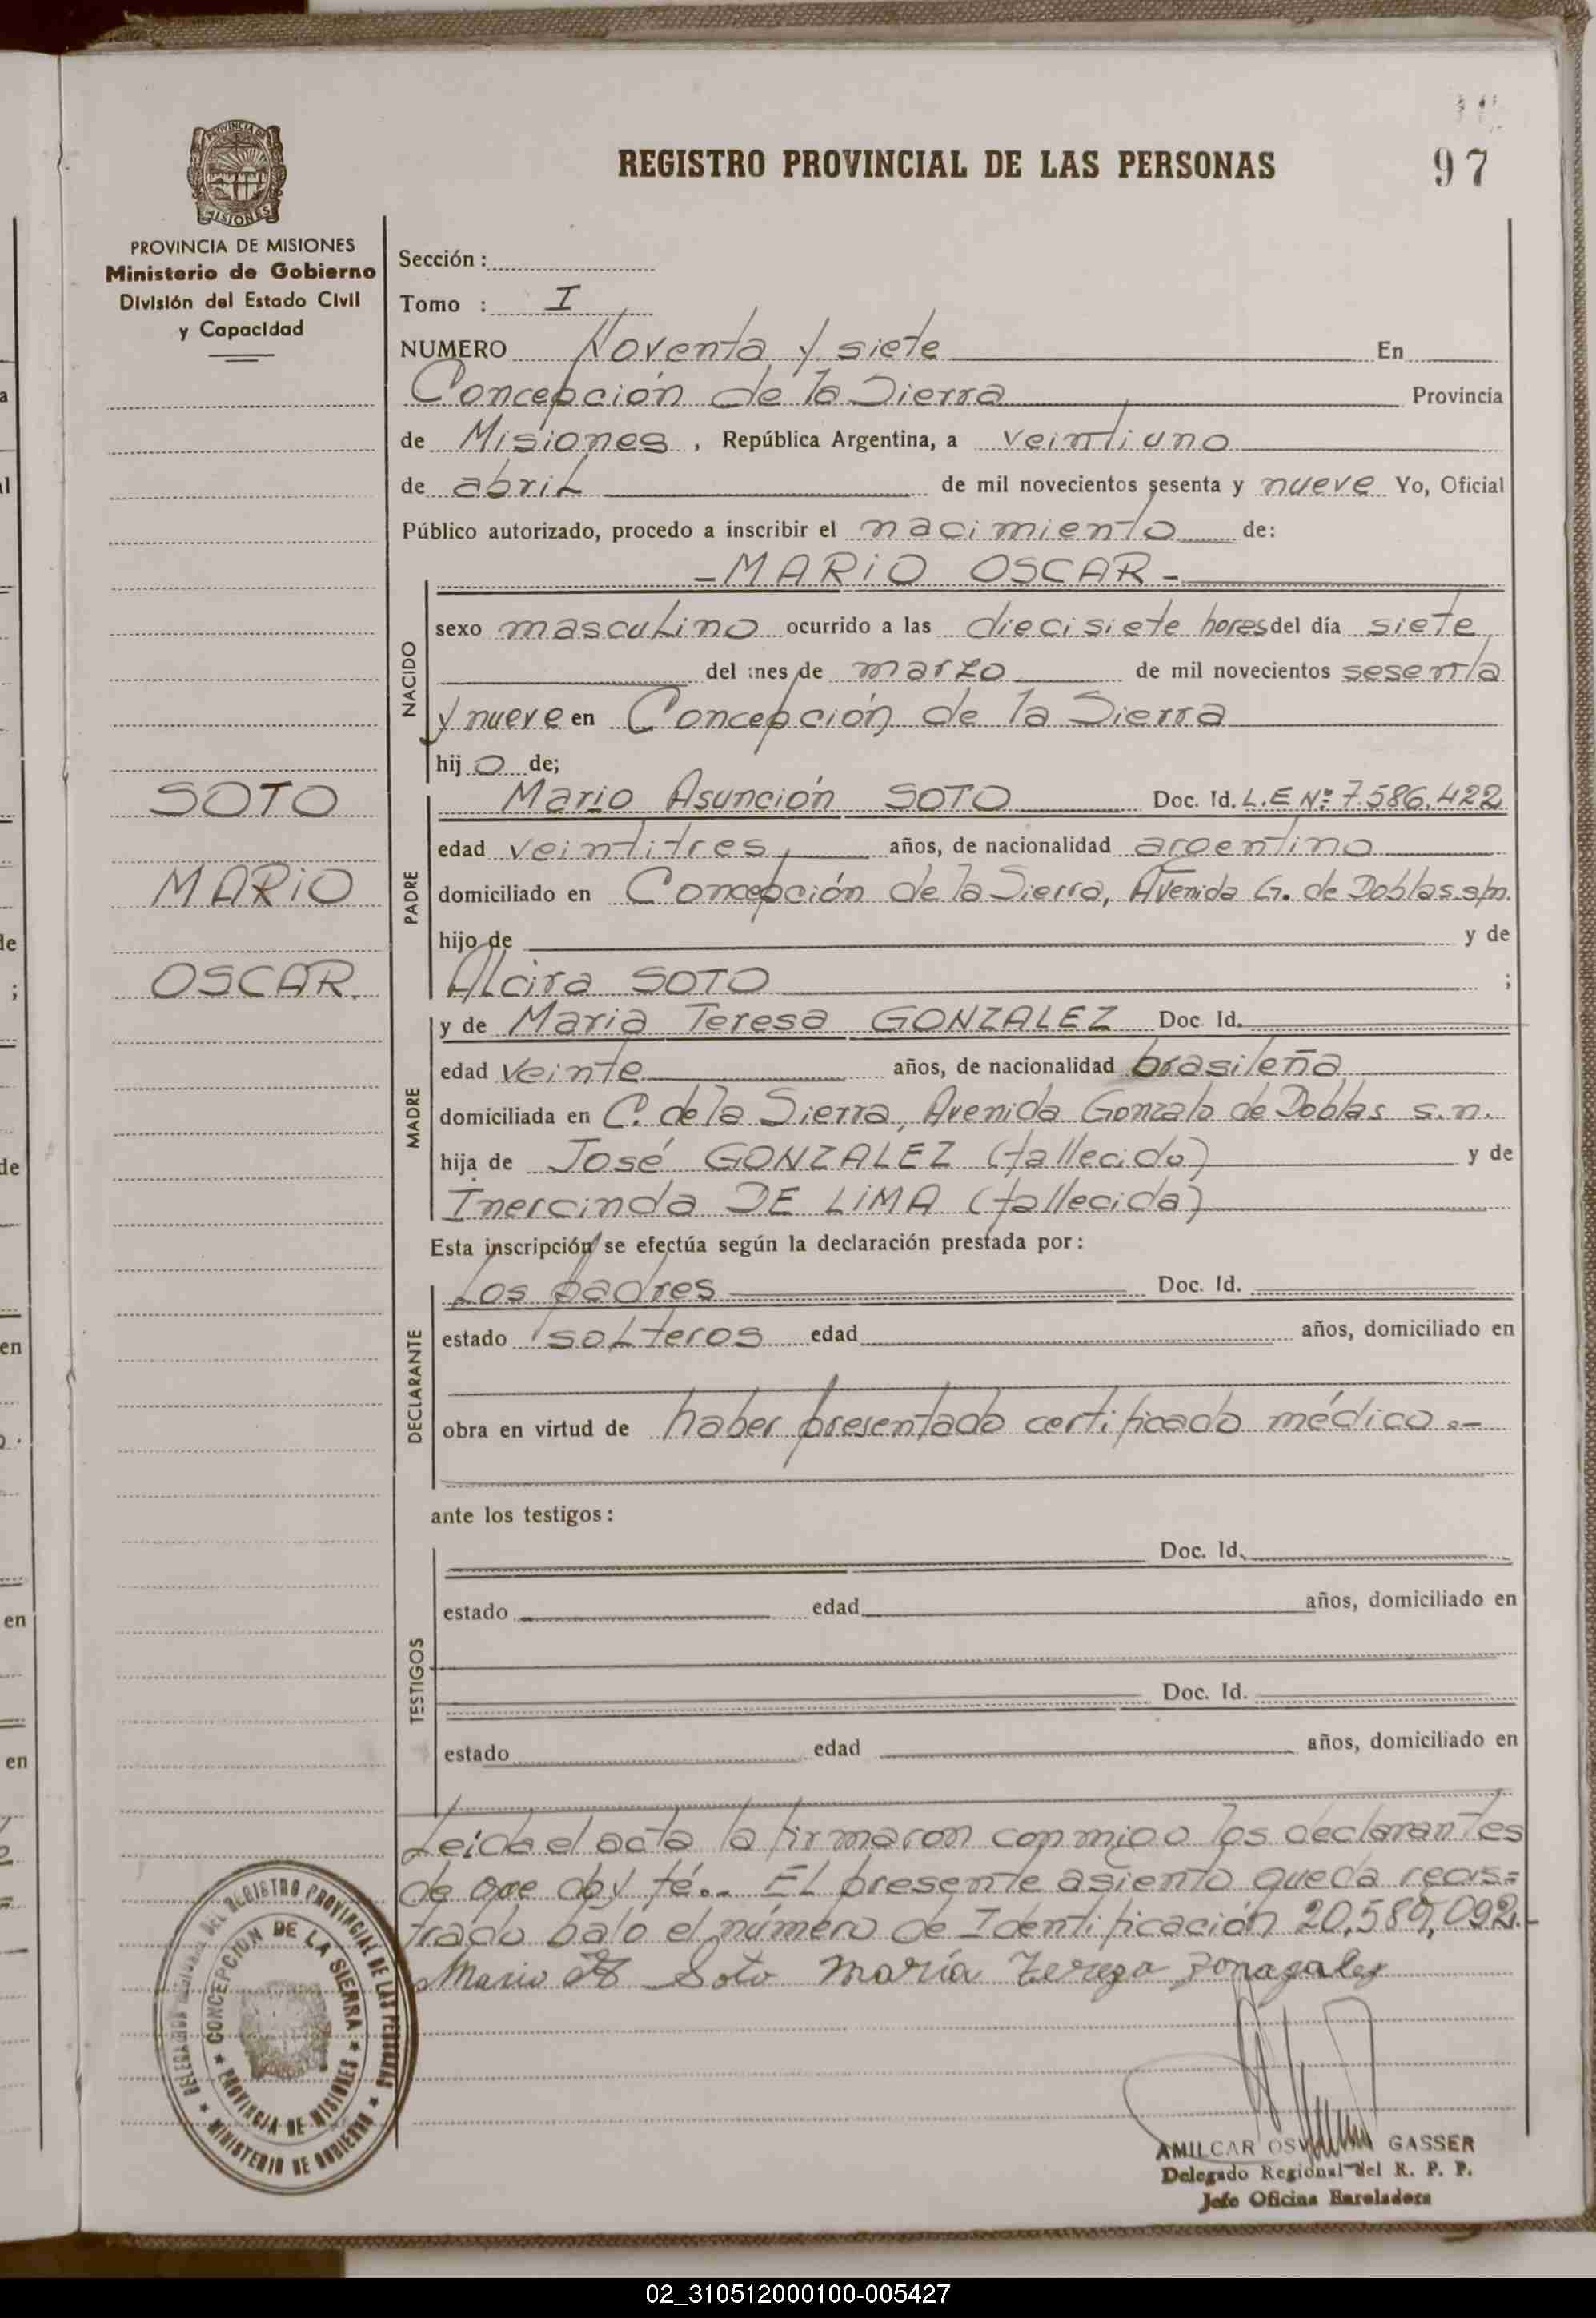 REGISTRO PROVINCIAL DE LAS PERSONAS
97
PROVINCIA DE MISIONES
Ministerio de Gobierno
División del Estado Civil
y Capacidad
Sección :
Tomo : I
NUMERO Noventa y siete En
Concepción de la Sierra Provincia
de Misiones , República Argentina, a veintiuno
de abril de mil novecientos sesenta y nueve Yo, Oficial
Público autorizado, procedo a inscribir el nacimiento de:
- MARIO OSCAR -
NACIDO
sexo masculino ocurrido a las diecisiete horas del día siete
del mes de marzo de mil novecientos sesenta
y nueve en Concepción de la Sierra
hijo de;
SOTO
MARIO
OSCAR.
PADRE
Mario Asunción SOTO Doc. Id. L.E Nº 7.586.422
edad veintitres años, de nacionalidad argentino
domiciliado en Concepción de la Sierra, Avenida G. de Doblas s/n.
hijo de y de
Alcira SOTO ;
MADRE
y de Maria Teresa GONZALEZ Doc. Id.
edad veinte años, de nacionalidad brasileña
domiciliada en C. de la Sierra, Avenida Gonzalo de Doblas s.n.
hija de José GONZALEZ (fallecido) y de
Inercinda DE LIMA (fallecida)
Esta inscripción se efectúa según la declaración prestada por:
DECLARANTE
Los padres Doc. Id.
estado solteros edad años, domiciliado en
obra en virtud de haber presentado certificado médico.-
ante los testigos:
TESTIGOS
Doc. Id.
estado edad años, domiciliado en
Doc. Id.
estado edad años, domiciliado en
Leida el acta la firmaron conmigo los declarantes
de que doy fé.. El presente asiento queda regis=
trado bajo el número de Identificación 20.589,092.-
Mario Soto María Tereza
DEL REGISTRO PROVINCIAL DE LAS PERSONAS
CONCEPCION DE LA SIERRA
PROVINCIA DE MISIONES
MINISTERIO DE GOBIERNO
AMILCAR GASSER
Delegado Regional del R. P. P.
Jefe Oficina Enroladora
02_310512000100-005427